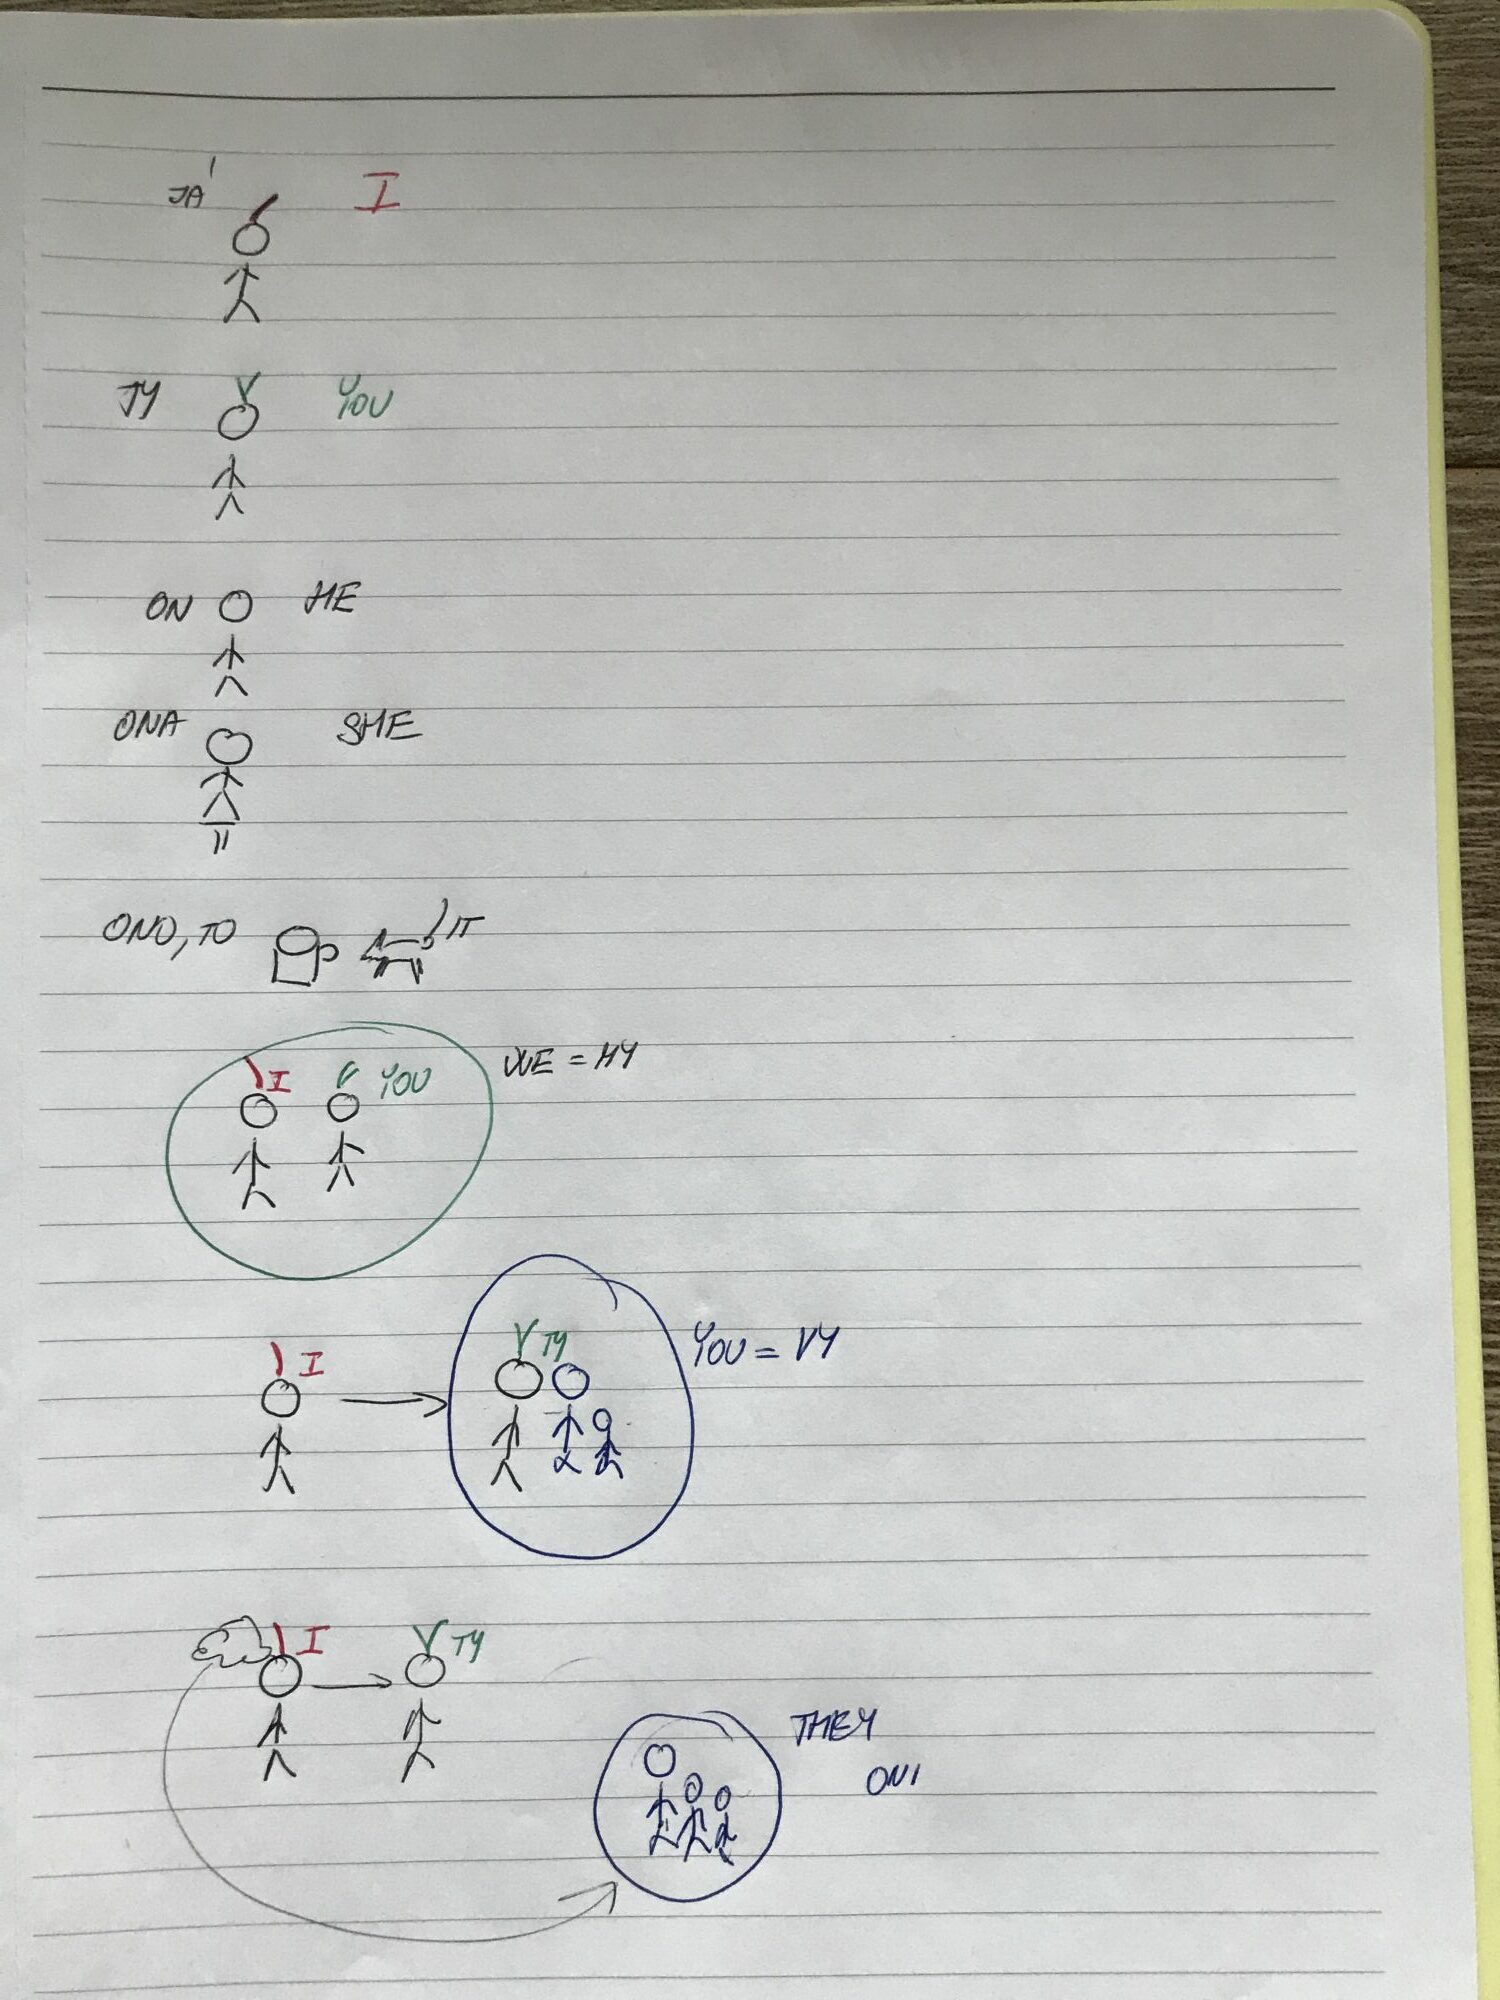 JÁ I
TY YOU
ON HE
ONA SHE
ONO, TO IT
I YOU WE = MY
I TY YOU = VY
I TY
THEY
ONI